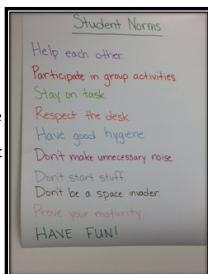 Student Norms
Help each other
Participate in group activities
Stay on task
Respect the desk
Have good hygiene
Don't make unnecessary noise
Don't start stuff
Don't be a space invader
Prove your maturity
HAVE FUN!